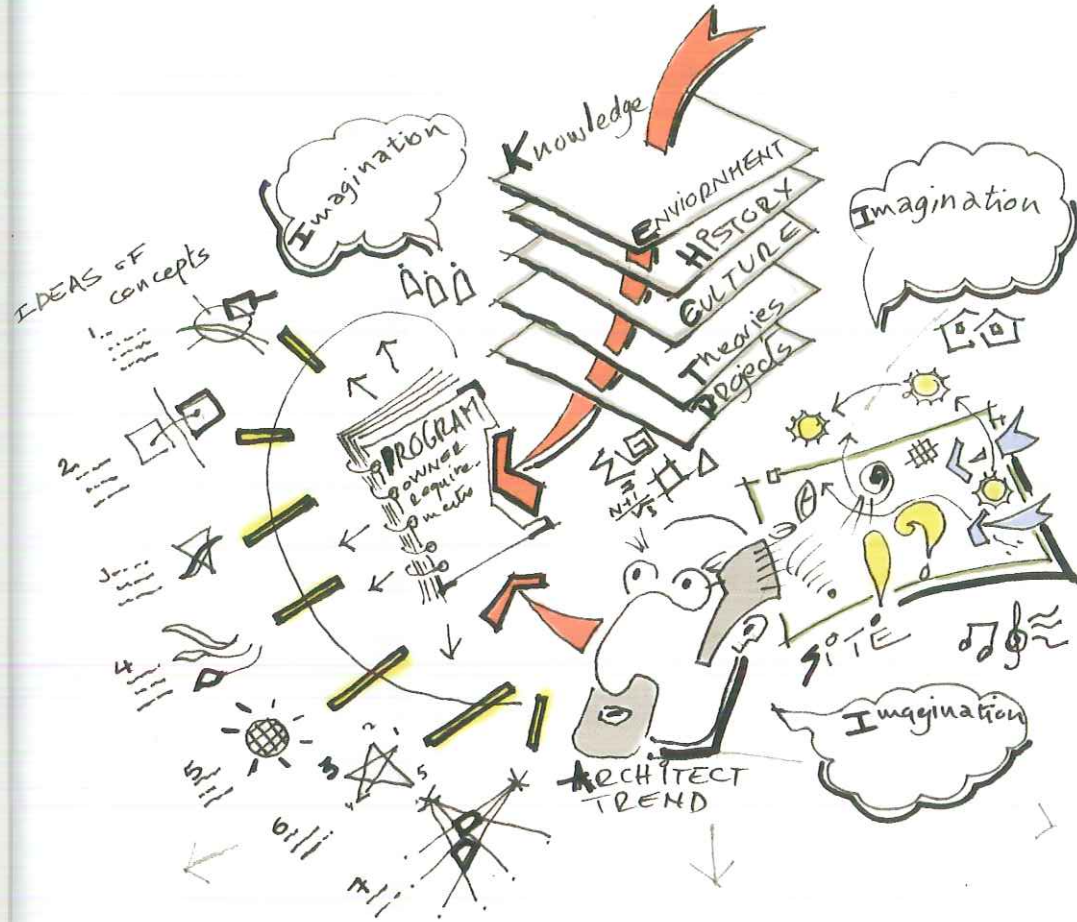 Imagination
Knowledge
ENVIORNMENT
HISTORY
CULTURE
Theories
Projects
Imagination
IDEAS OF
concepts
1.
2.
3
4
5
6
7.
PROGRAM
OWNER
require.
ments
N+1
3
√3
SITE
3
2
1
5
4
Imagination
ARCHITECT
TREND